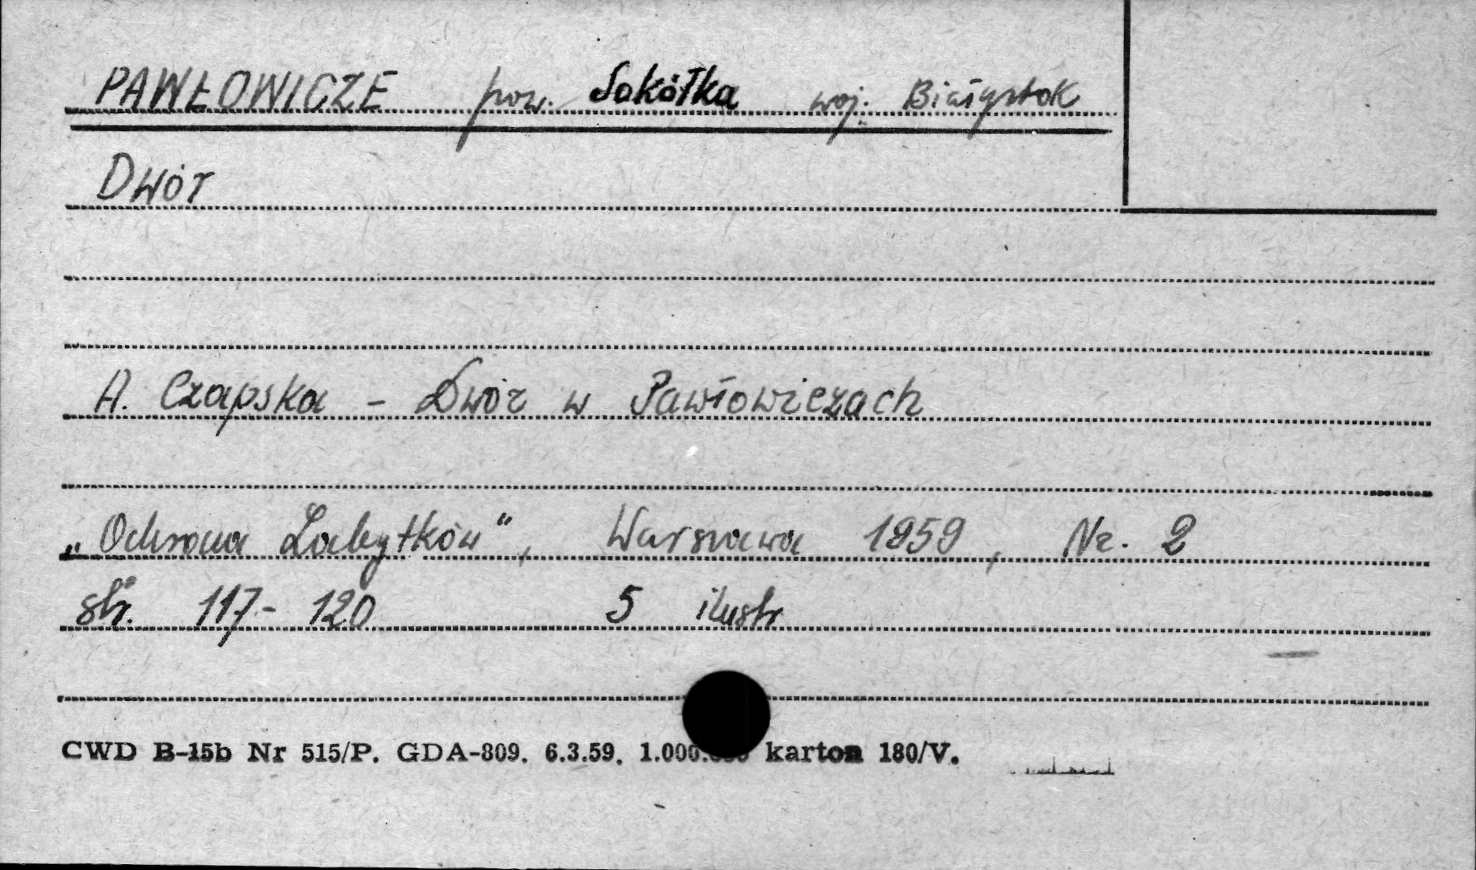 PAWŁOWICZE pow. Sokółka woj. Białystok
Dwór
A. Czapska - Dwór w Pawłowiczach
„Ochrona Zabytków", Warszawa 1959, Nr. 2
str. 117-120 5 ilustr
CWD B-15b Nr 515/P. GDA-809. 6.3.59. 1.000. karton 180/V.